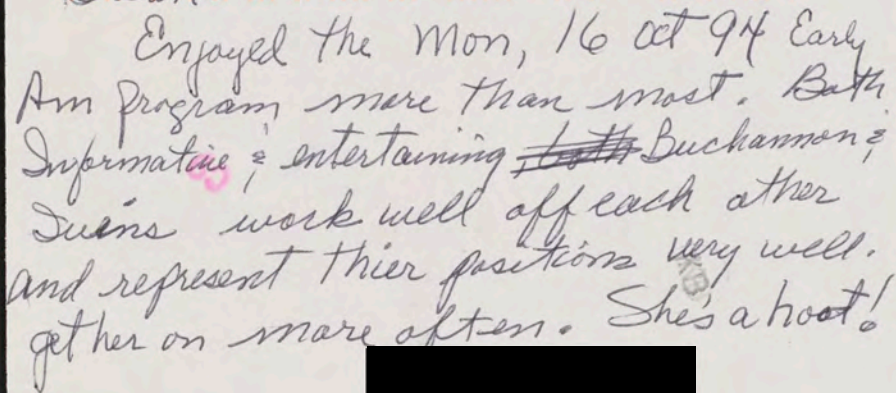 Enjoyed the Mon, 16 Oct 94 Early
Am program more than most. Both
Informative & entertaining Buchannon &
Ivins work well off each other
and represent thier positions very well.
get her on more often. She's a hoot!